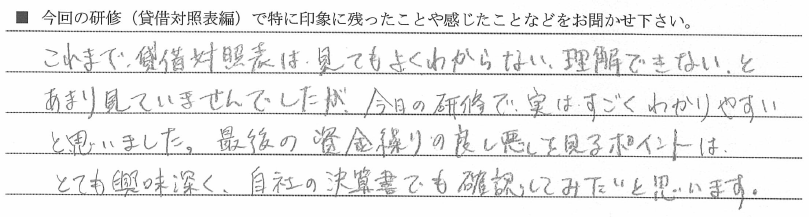 ■ 今回の研修（貸借対照表編）で特に印象に残ったことや感じたことなどをお聞かせ下さい。
これまで、貸借対照表は、見てもよくわからない、理解できない、と
あまり見ていませんでしたが、今日の研修で、実は、すごくわかりやすい
と思いました。最後の資金繰りの良し悪しを見るポイントは、
とても興味深く、自社の決算書でも確認してみたいと思います。